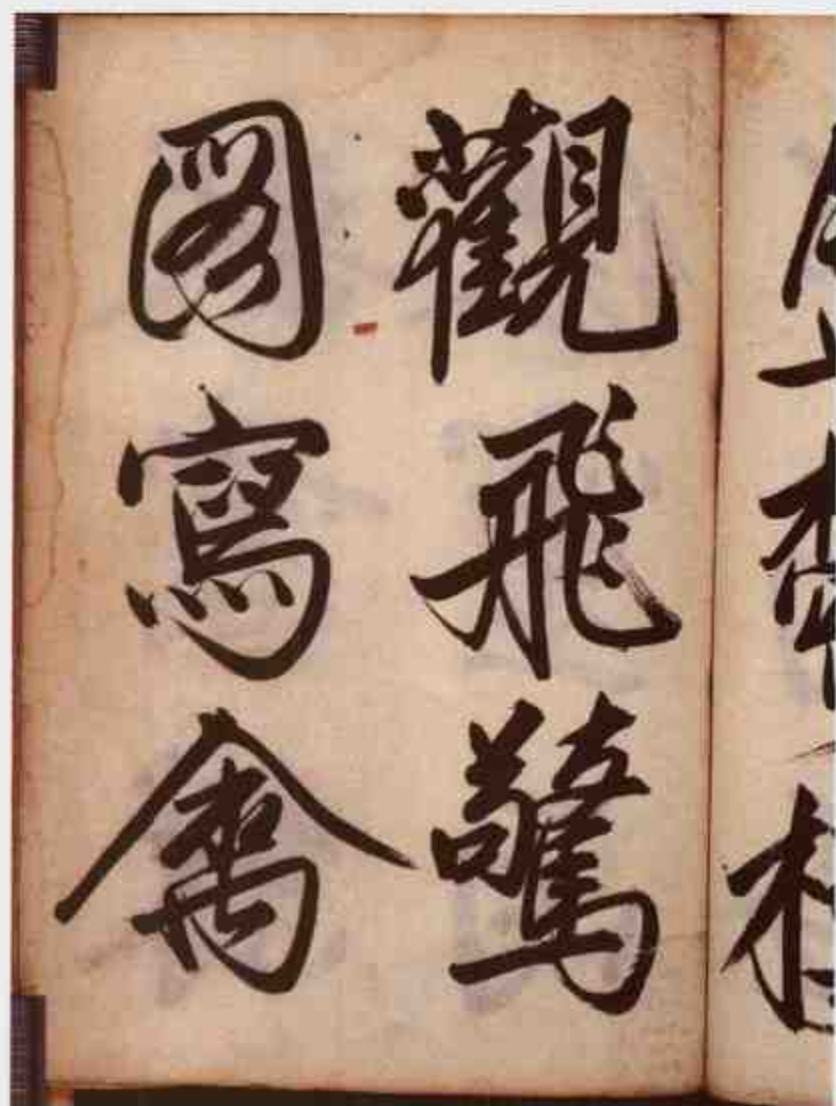 觀飛驚
圖寫禽